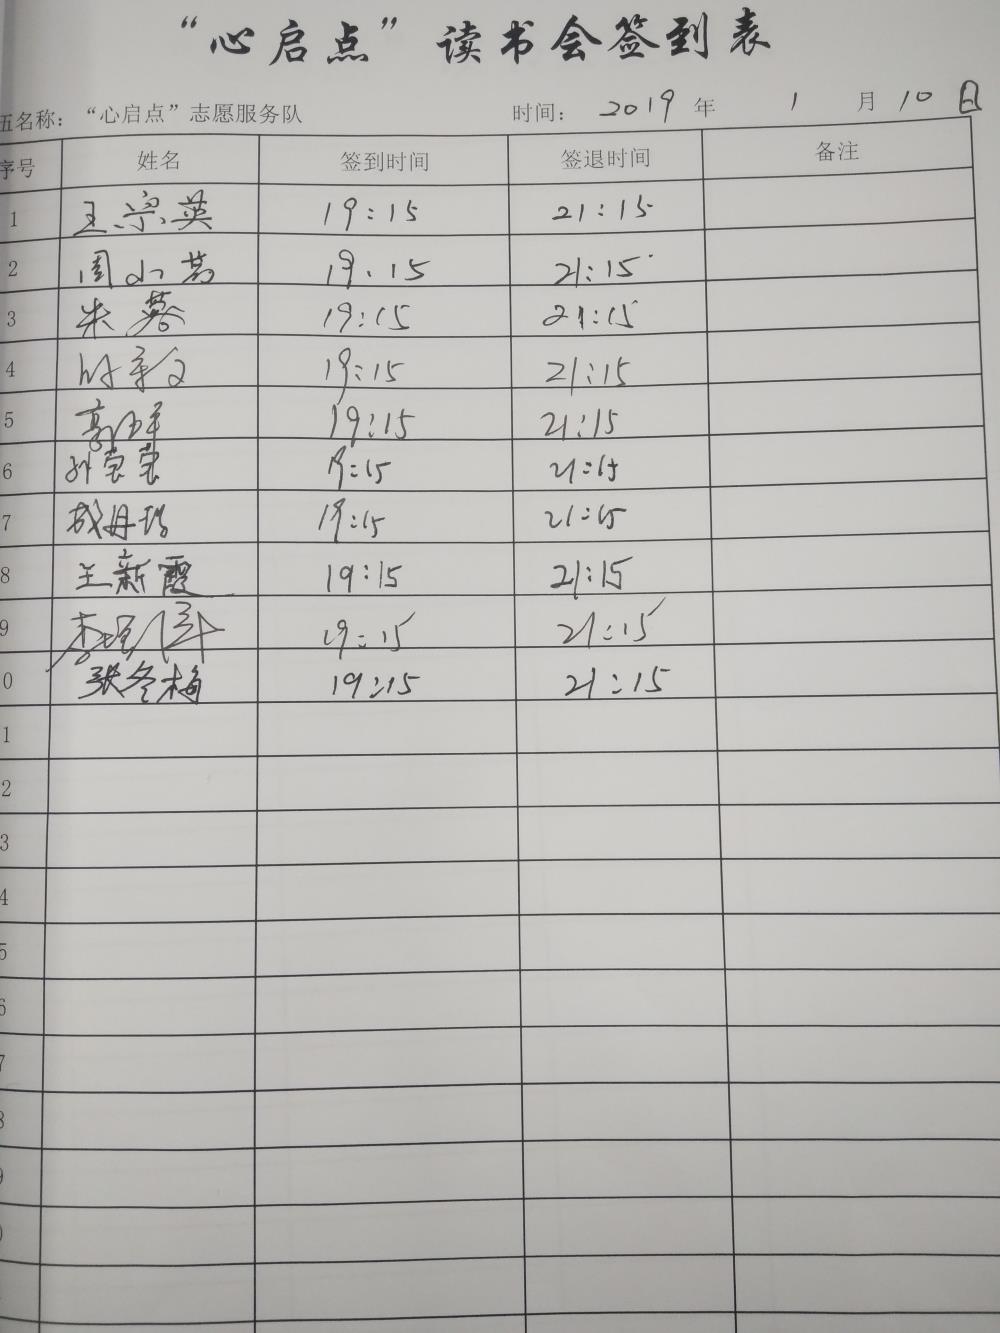 “心启点”读书会签到表
伍名称：“心启点”志愿服务队 时间： 2019 年 1 月 10 日
序号 姓名 签到时间 签退时间 备注
1 王宗英 19:15 21:15
2 周小 19:15 21:15
3 朱蓉 19:15 21:15
4 19:15 21:15
5 19:15 21:15
6 孙莹莹 19:15 21:15
7 成丹 19:15 21:15
8 王新霞 19:15 21:15
9 李 19:15 21:15
0 张冬梅 19:15 21:15
1
2
3
4
5
6
7
8
9
0